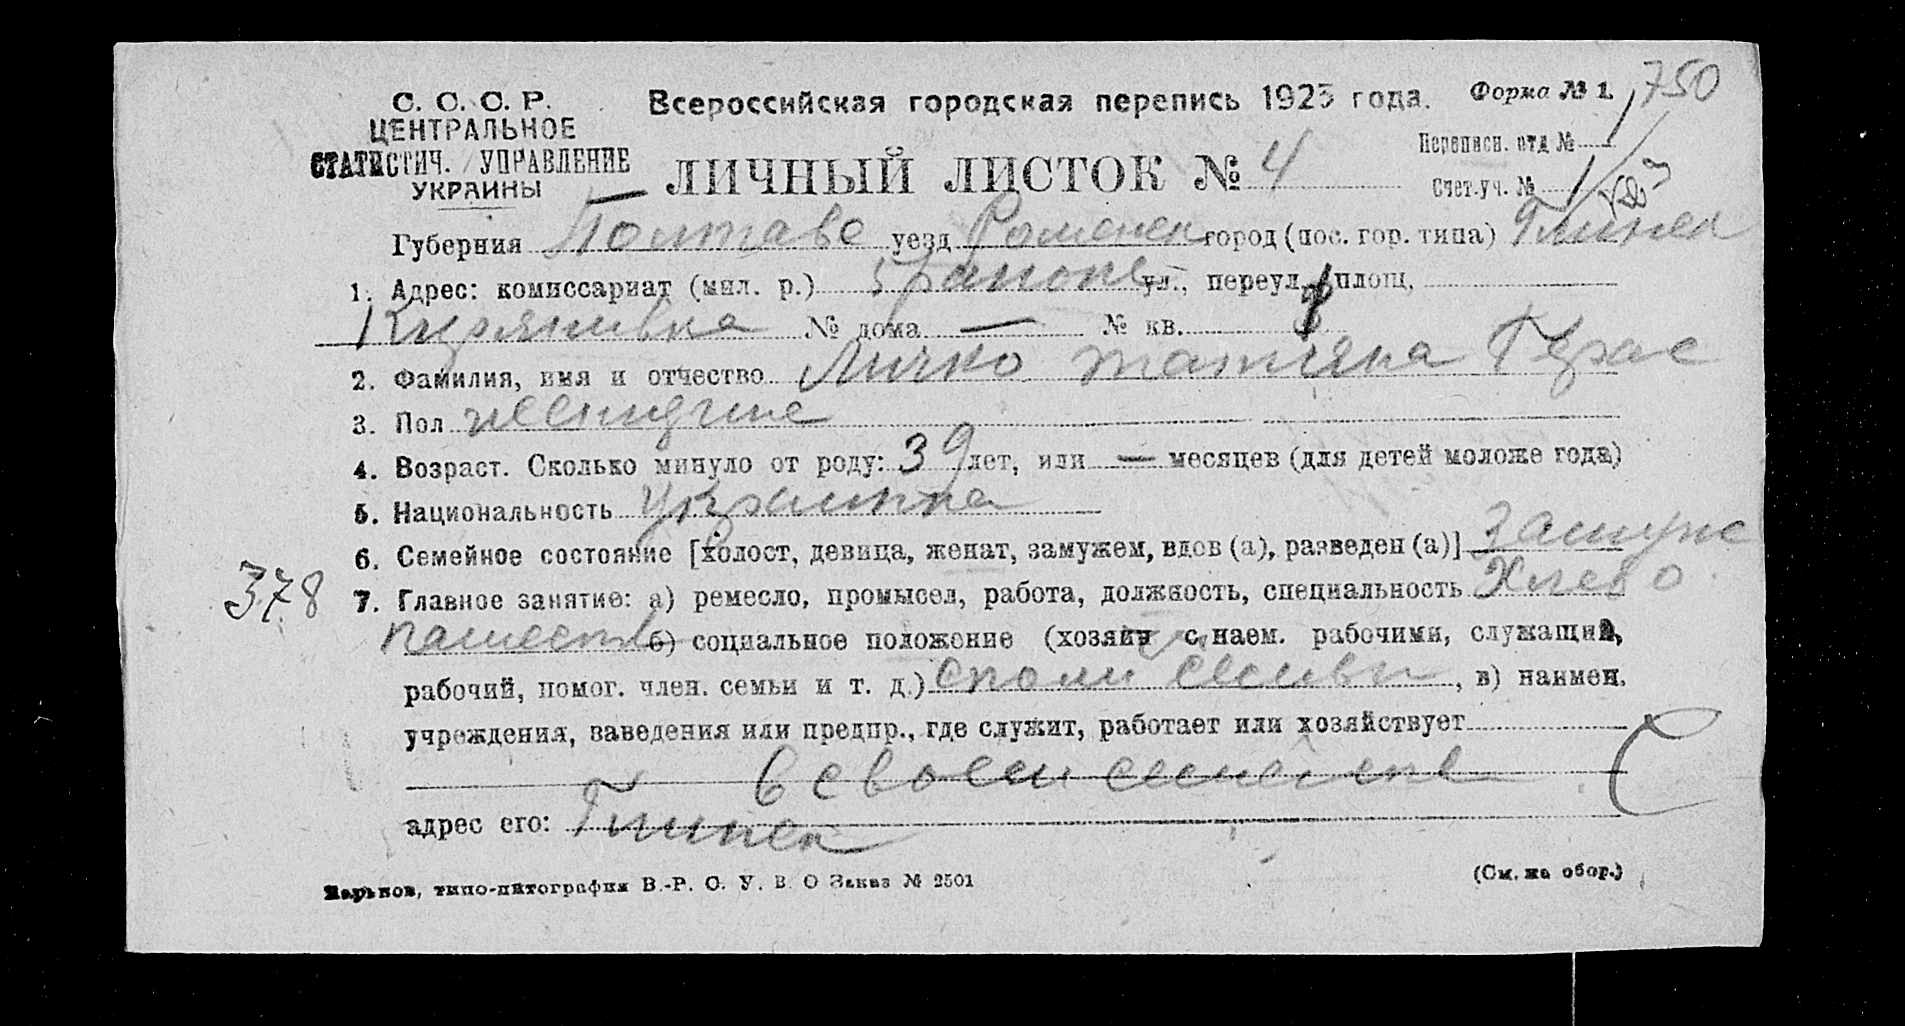 С. С. С. Р.
ЦЕНТРАЛЬНОЕ
СТАТИСТИЧ. УПРАВЛЕНИЕ
УКРАИНЫ
Всероссийская городская перепись 1923 года.
Форма № 1.
750
Переписн. отд № 1
ЛИЧНЫЙ ЛИСТОК № 4
Счет.уч. № 1
Губерния Полтаве уезд Роменск город (пос. гор. типа) Глинск
1. Адрес: комиссариат (мил. р.) ул., переул., площ,
№ дома — № кв.
2. Фамилия, имя и отчество Личко Татяна Герас
3. Пол женщине
4. Возраст. Сколько минуло от роду: 39 лет, или — месяцев (для детей моложе года)
5. Национальность Украинка
6. Семейное состояние [холост, девица, женат, замужем, вдов (а), разведен (а)] Замуже
378
7. Главное занятие: а) ремесло, промысел, работа, должность, специальность Хлебо
пашеств б) социальное положение (хозяин с наем. рабочими, служащий,
рабочий, помог. член. семьи и т. д.) , в) наимен.
учреждения, заведения или предпр., где служит, работает или хозяйствует
в своем
адрес его: Глинск
Харьков, типо-литография В.-Р. О. У. В. О Заказ № 2501
(См. на обор.)